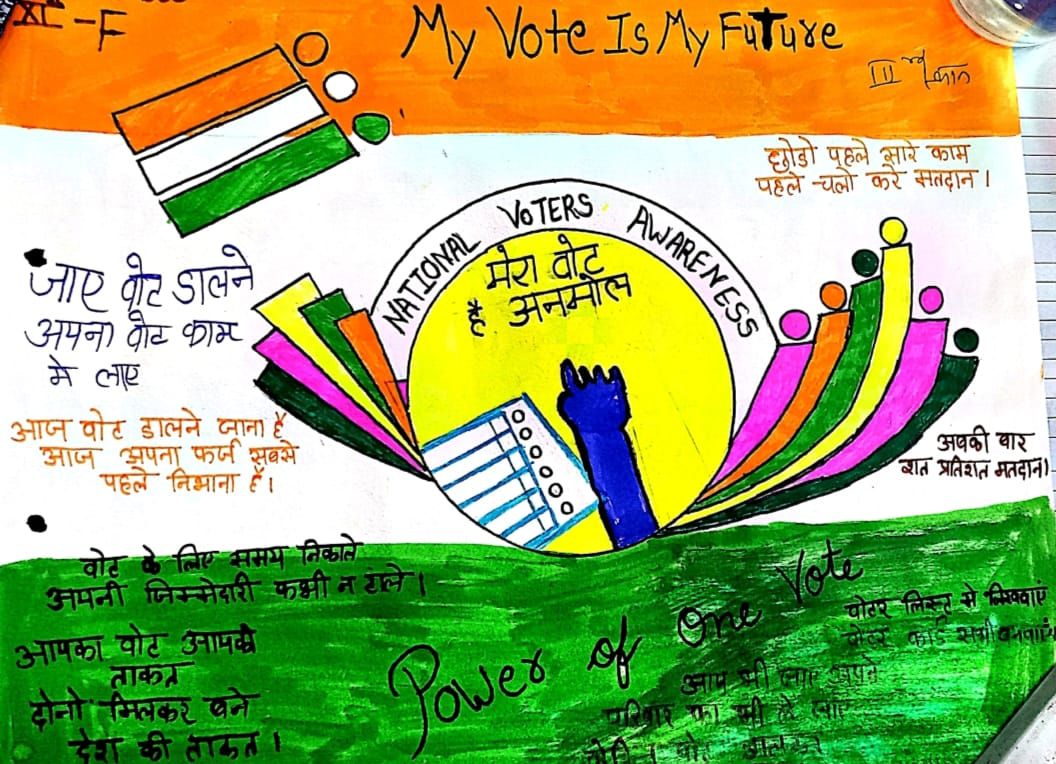 XI-F
My Vote Is My Future
III स्थान
छोडो पहले सारे काम
पहले चलो करे मतदान।
NATIONAL VOTERS AWARENESS
मेरा वोट
है अनमोल
जाए वोट डालने
अपना वोट काम
मे लाए
आज वोट डालने जाना है
आज अपना फर्ज सबसे
पहले निभाना है।
अबकी बार
शत प्रतिशत मतदान।
वोट के लिए समय निकाले
अपनी जिम्मेदारी कभी न टाले।
आपका वोट आपकी
ताकत
दोनो मिलकर बने
देश की ताकत।
Power of One Vote
वोटर लिस्ट मे लिखवाएं
वोटर कार्ड सभी बनवाएं
आप भी जाए अपने
परिवार को भी ले जाए
वोट